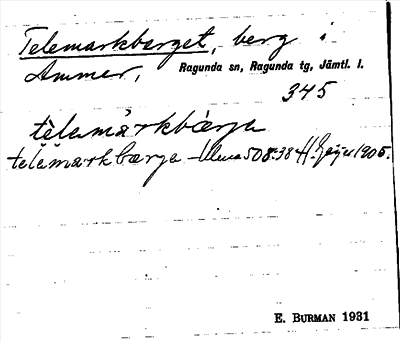 Telemarkberget, berg i
Ammer, Ragunda sn, Ragunda tg, Jämtl. l.
345
tèlemàrkbærja
telemarkbærja Ulma 508:38 H. Geijer 1905.
E. BURMAN 1931